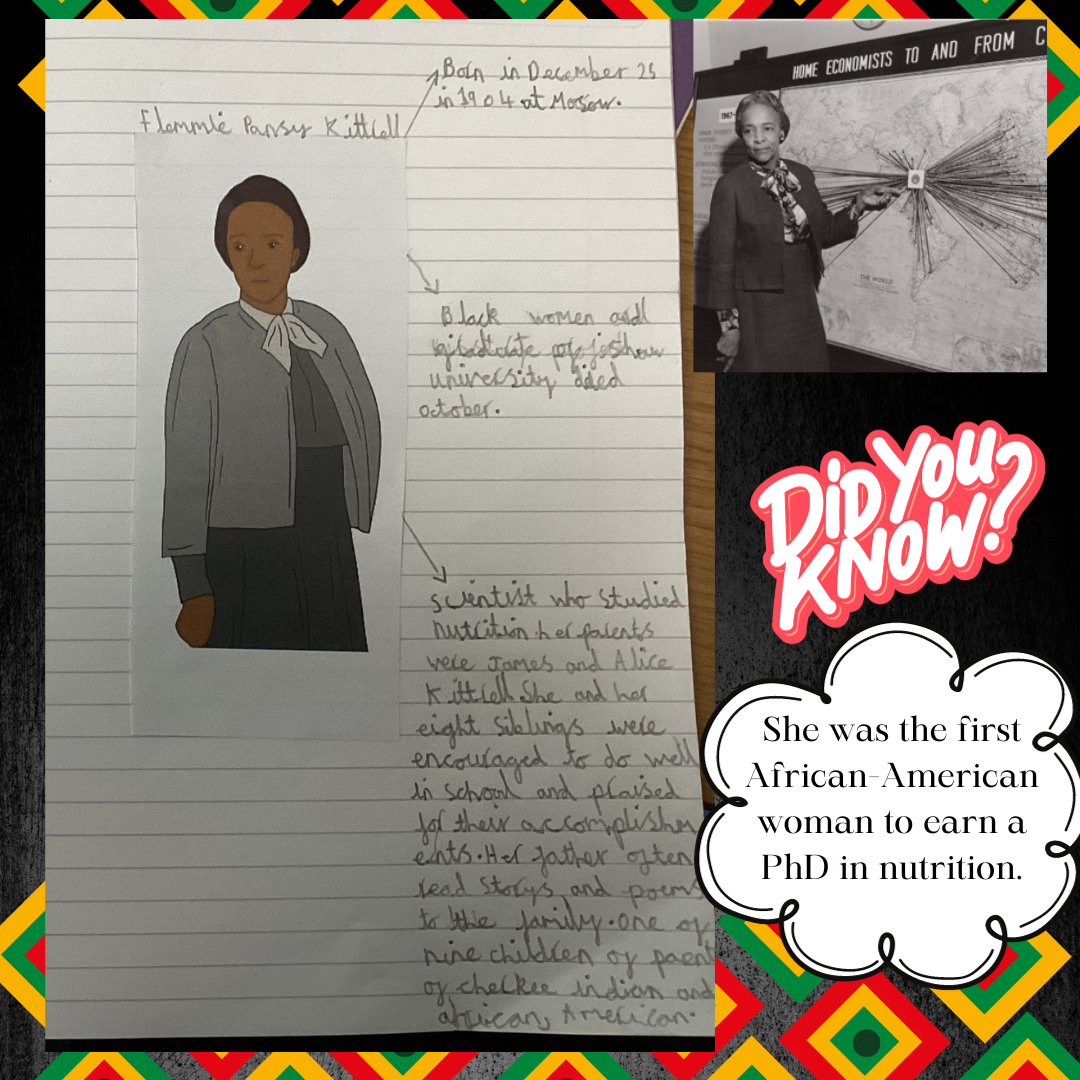 Born in December 25
in 1904 at Moscow.
Flemmie Pansy Kittrell
Black women and
university died
october.
scientist who studied
nutrition.her parents
were James and Alice
Kittrell She and her
eight siblings were
encouraged to do well
in school and plaised
for their accomplishm
ents.Her father often
read storys and poems
to the family.one of
nine children of paent
of checkee indian and
african, American.
HOME ECONOMISTS TO AND FROM C
1967-
THE WORLD
DiD YOU
KNOW?
She was the first
African-American
woman to earn a
PhD in nutrition.